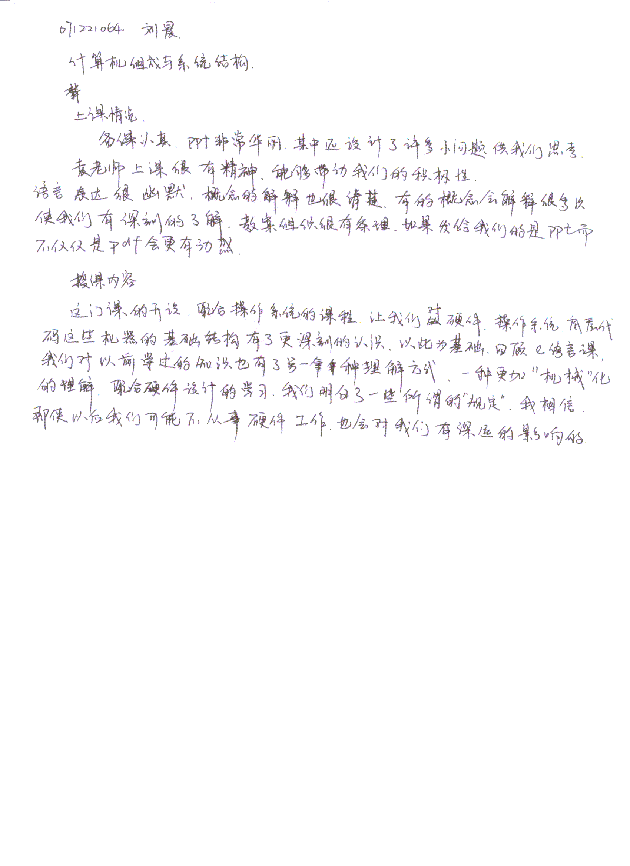 071221064 刘霞
计算机组成与系统结构.
上课情况.
备课认真 ppt非常华丽.其中还设计了许多小问题供我们思考.
袁老师上课很有精神.能够带动我们的积极性.
语言表达很幽默.概念的解释也很清楚.有的概念会解释很多次
使我们有深刻的了解.教案组织很有条理.如果发给我们的是ppt而
不仅仅是pdf会更有动
授课内容
这门课的开设.配合操作系统的课程.让我们对硬件.操作系统.底层代
码这些机器的基础结构有了更深刻的认识.以此为基础.回顾c语言课,
我们对以前学过的知识也有了另一种理解方式.一种更加"机械"化
的理解.配合硬件设计的学习.我们明白了一些所谓的"规定".我相信.
那使以后我们可能不从事硬件工作.也会对我们有深远的影响的